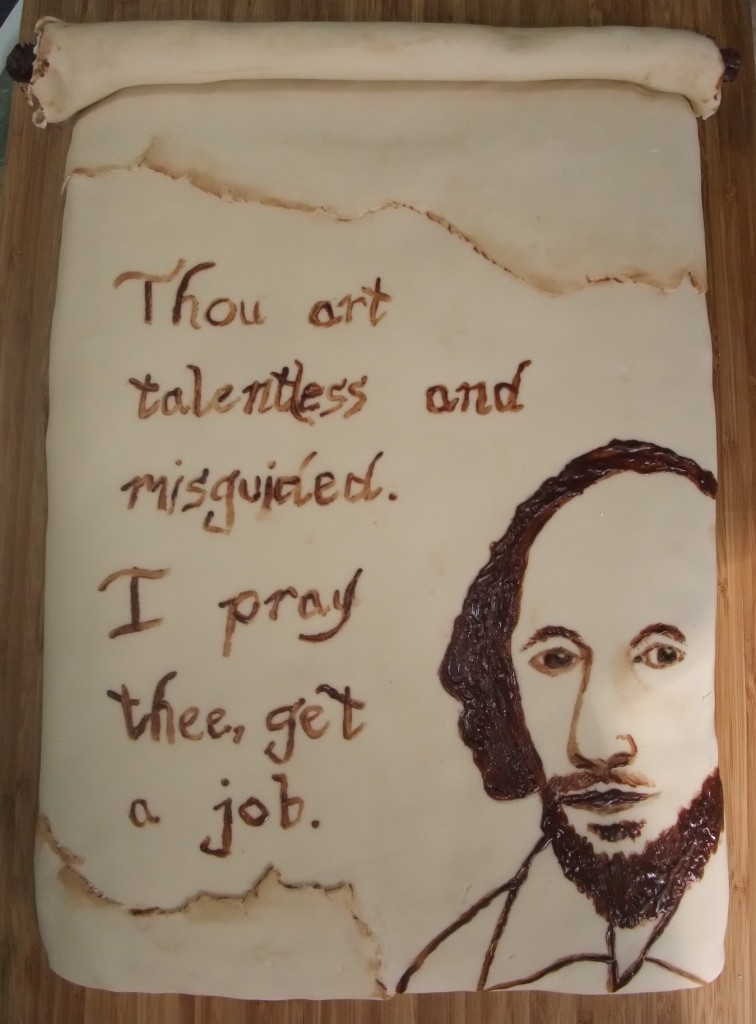 Thou art
talentless and
misguided.
I pray
thee, get
a job.